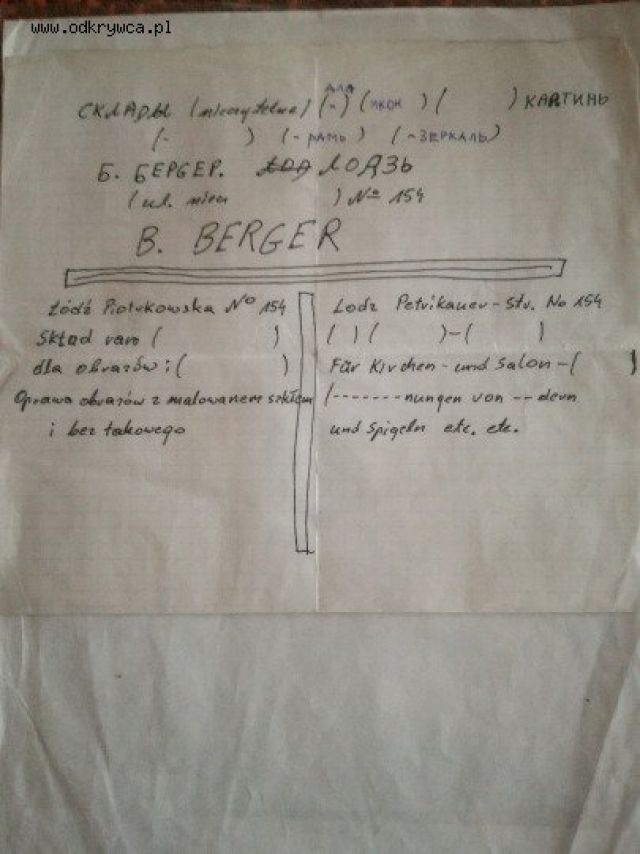 www.odkrywca.pl
для
СКЛАДЫ (nieczytelne) (~) (ИКОН ) ( ) КАРТИНЬ
(- ) (-РАМЬ) (~ЗЕРКАЛЬ)
Б. БЕРГЕР. ЛОДЗЬ
(ul. niem ) No 154
B. BERGER
Łódź Piotrkowska No 154
Skład ram ( )
dla obrazów: ( )
Oprawa obrazów z malowanem szkłem
i bez takowego
Lodz Petrikauer-Str. No 154
( ) ( )-( )
Für Kirchen-und Salon-( )
(-------nungen von --dern
und Spigeln etc. etc.